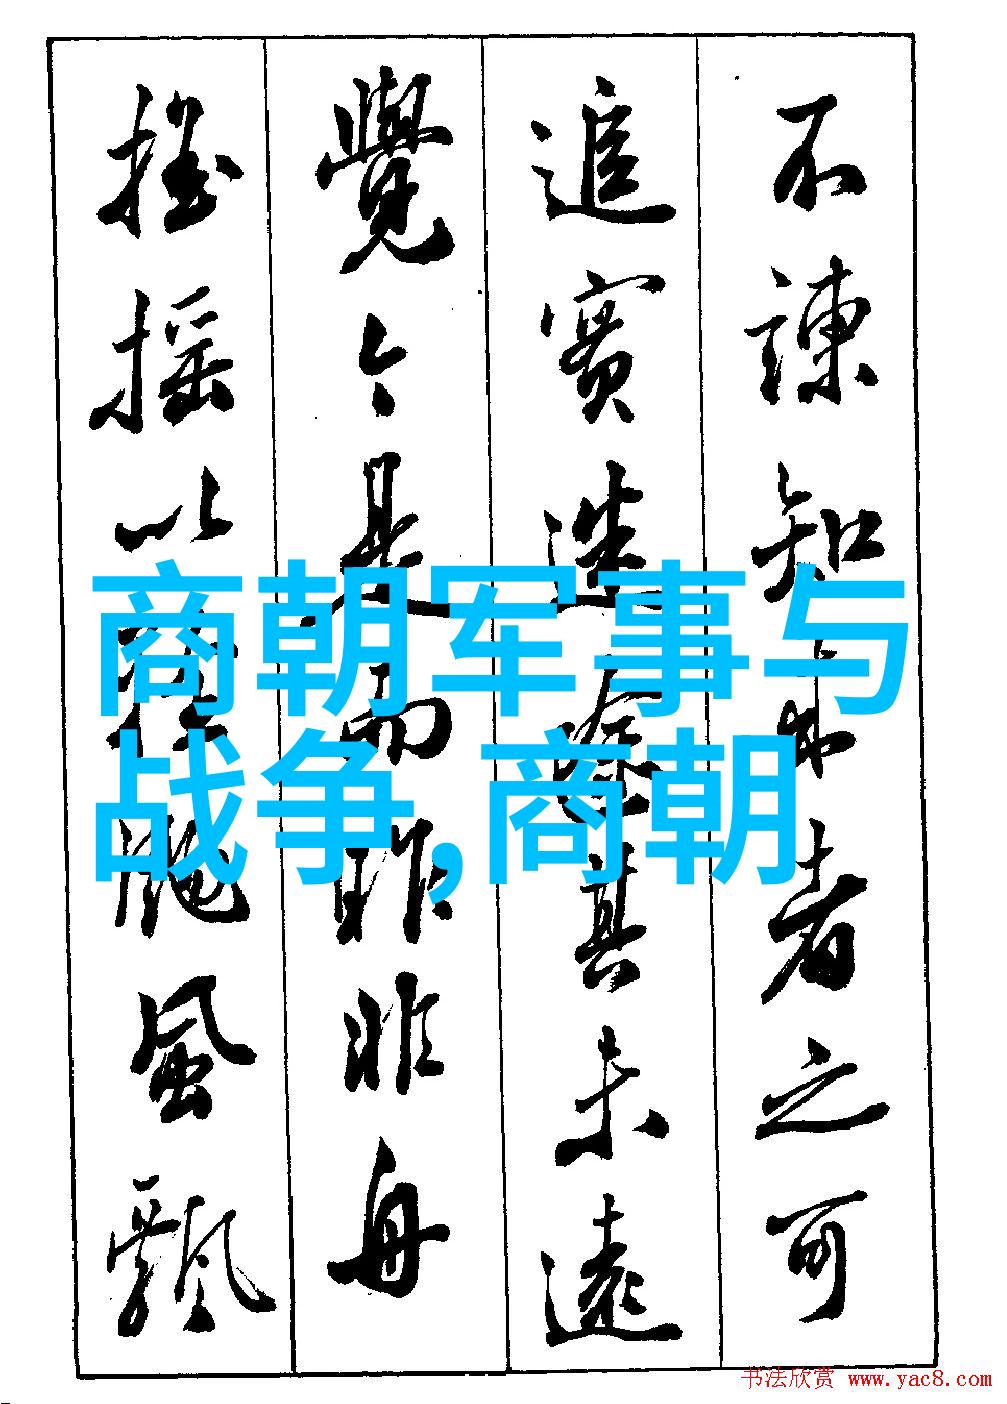 不諫知来者之可
追實迷塗其未遠
覺今是而昨非舟
摇摇以輕颺風飄
商朝军事与
战争,商朝
书法欣赏 www.yac8.com